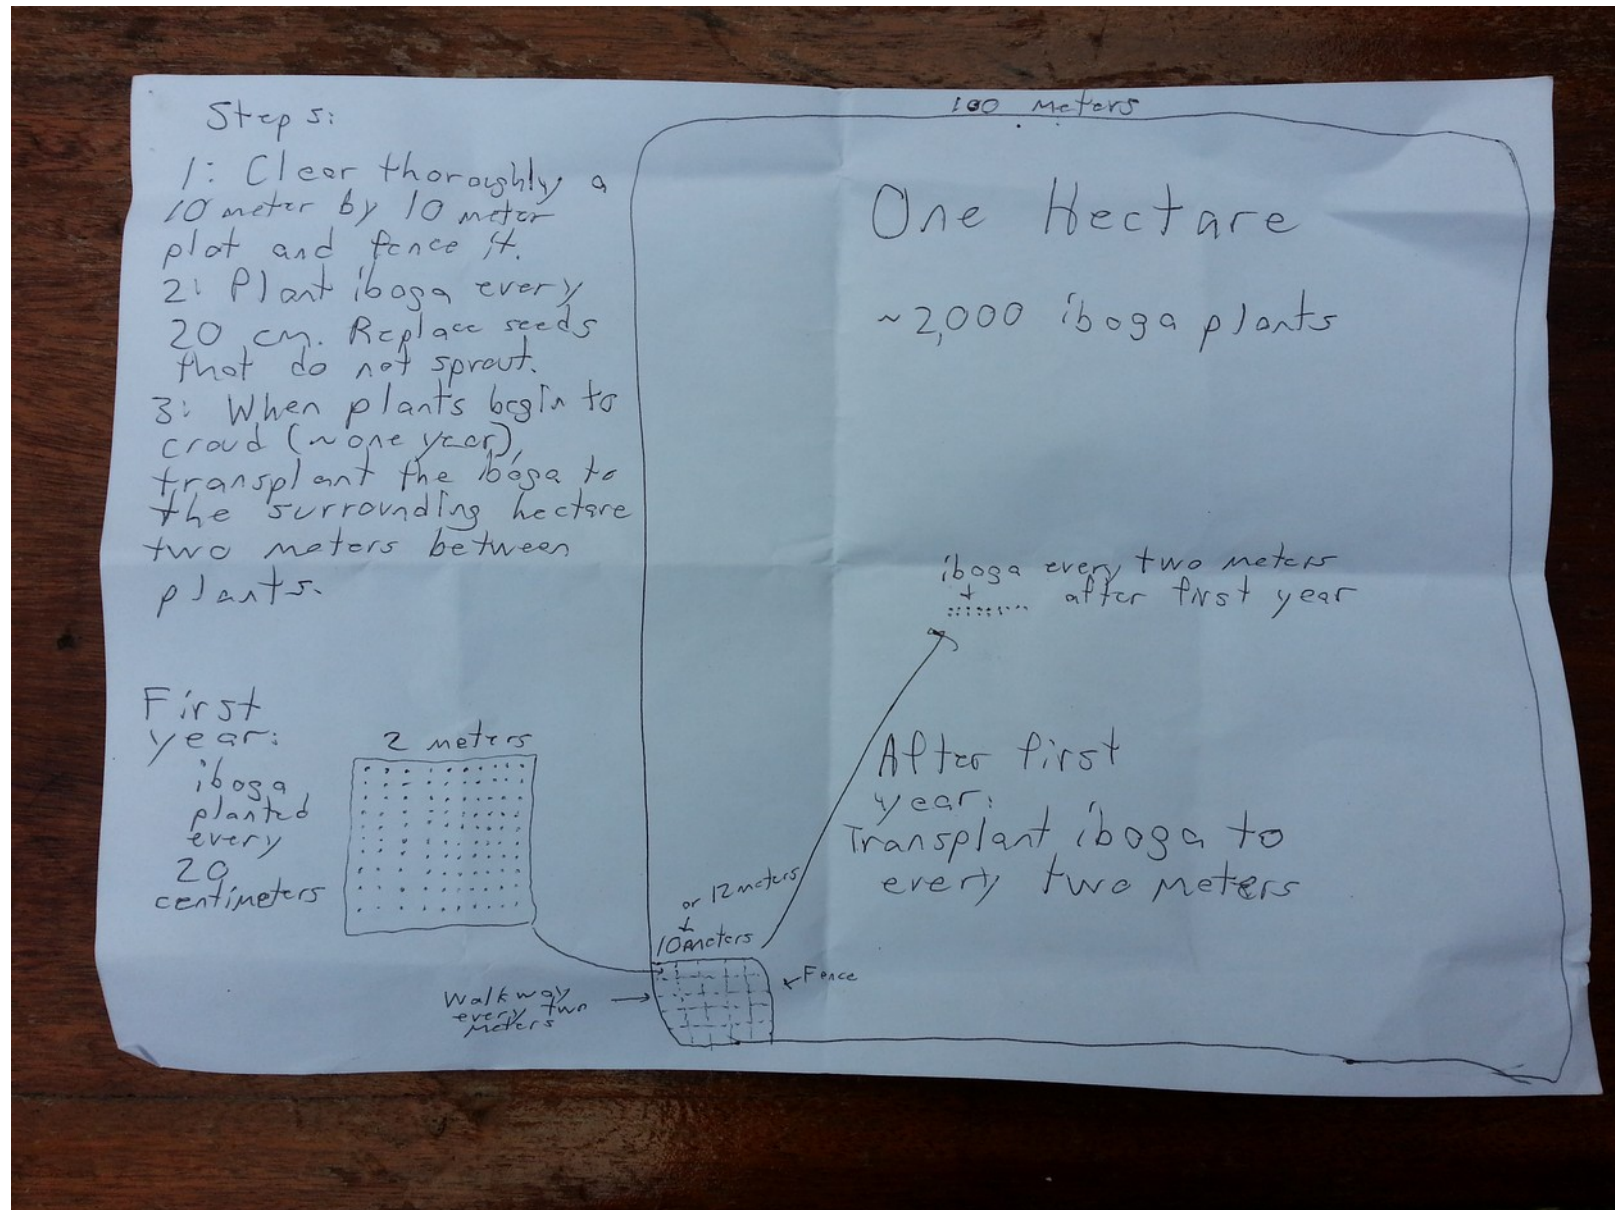 Steps:
1: Clear thoroughly a
10 meter by 10 meter
plot and fence it.
2: Plant iboga every
20 cm. Replace seeds
that do not sprout.
3: When plants begin to
croud (~one year),
transplant the iboga to
the surrounding hectare
two meters between
plants.
First
year:
iboga
planted
every
20
centimeters
2 meters
Walkway
every two
meters
100 meters
One Hectare
~2,000 iboga plants
iboga every two meters
after first year
After first
year:
Transplant iboga to
every two meters
or 12 meters
10 meters
Fence